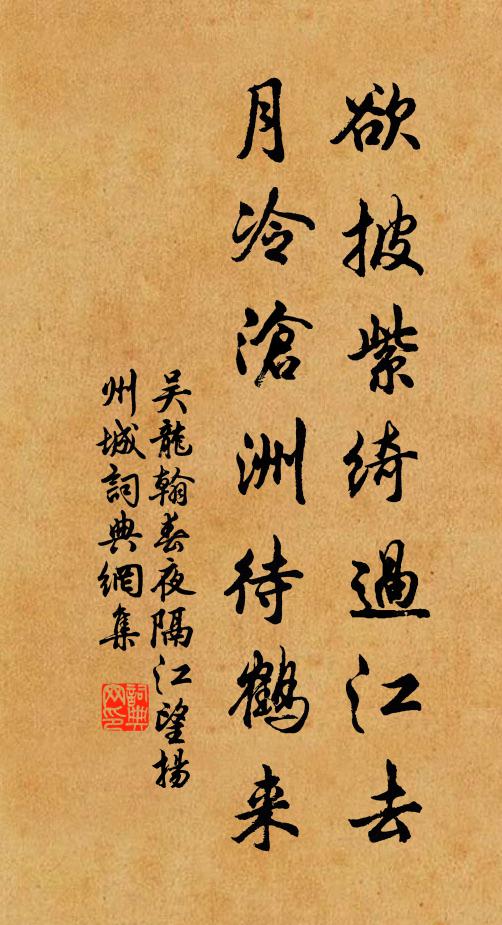 欲披紫绮過江去
月冷滄洲待鶴来
吴龍翰春夜隔江望揚
州城詞典網集
詞典网印